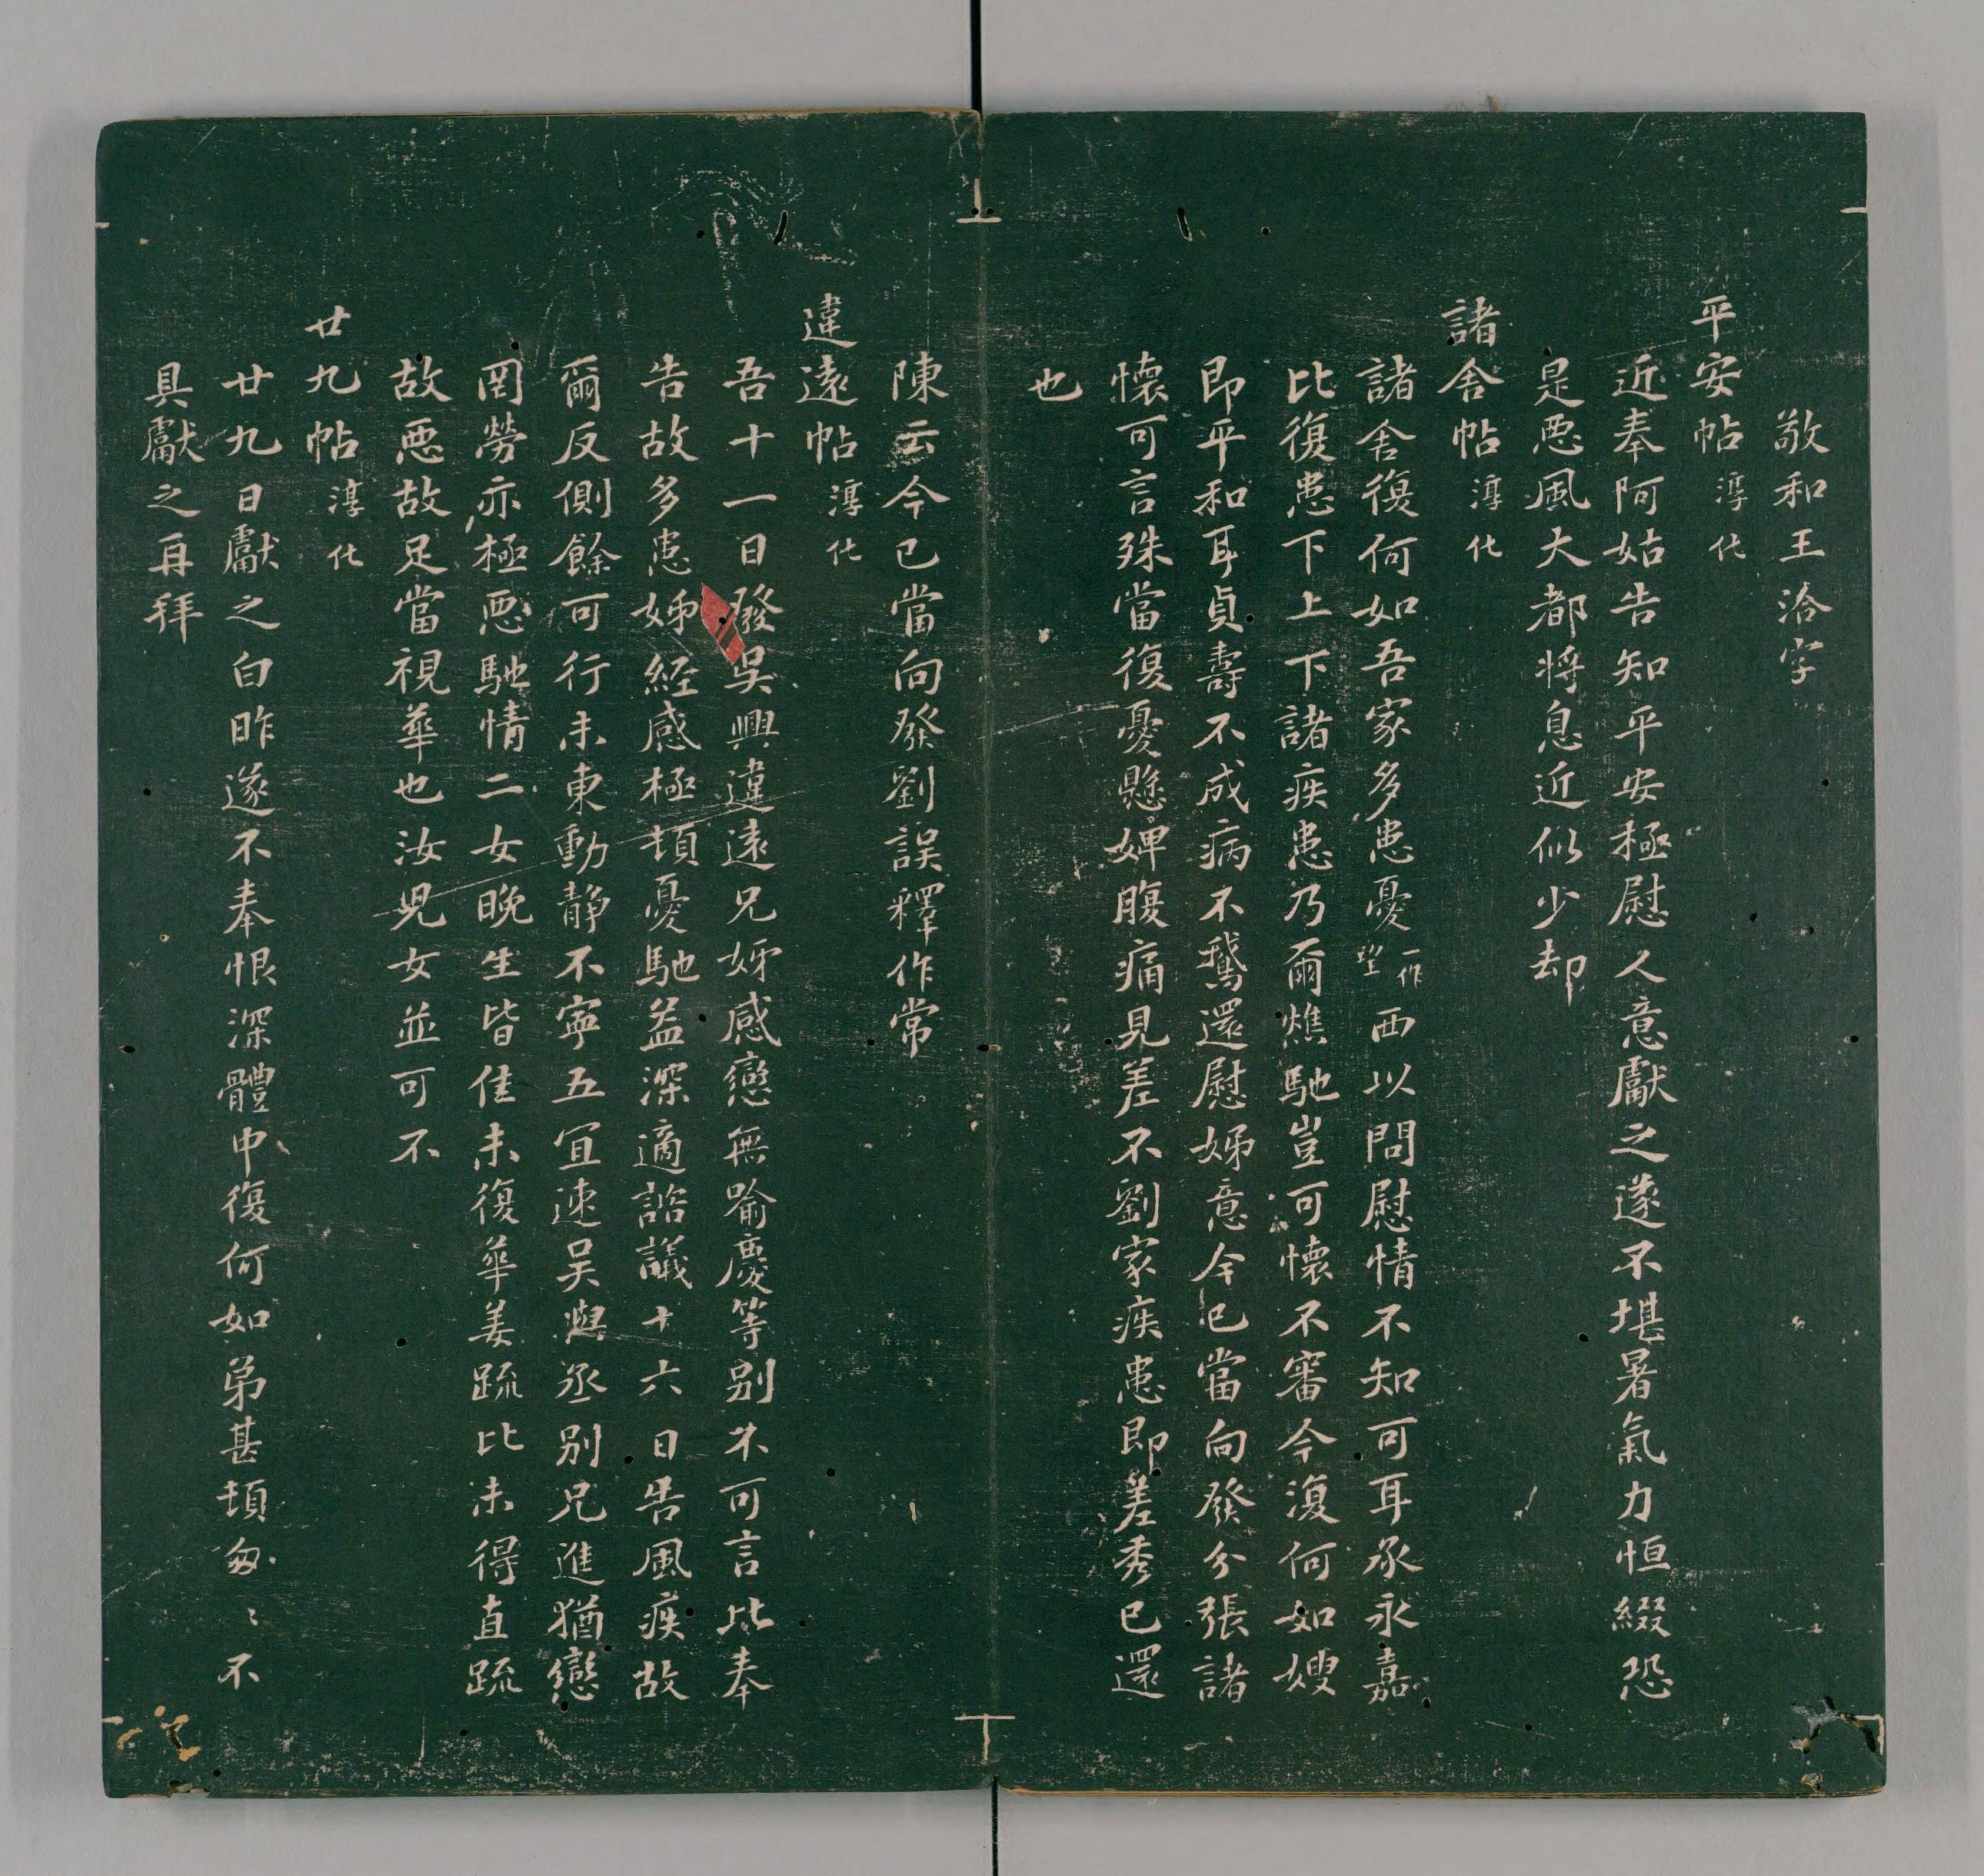 敬和王洽字
平安帖 淳化
近奉阿姑告知平安極慰人意獻之遂不堪暑氣力恒綴恐
是惡風大都將息近似少却
諸舍帖 淳化
諸舍復何如吾家多患憂一作𢙣西以問慰情不知可耳承永嘉
比復患下上下諸疾患乃爾燋馳豈可懷不審今復何如嫂
即平和耳貞壽不成病不鵝還慰娣意今已當向發分張諸
懷可言殊當復憂懸婢腹痛見差不劉家疾患即差秀已還
也
陳云今已當向發劉誤釋作常
違遠帖 淳化
吾十一日發吳興違遠兄姊感戀無喻慶等别不可言比奉
告故多患姊經感極頓憂馳益深適諮議十六日告風疾故
爾反側餘可行未東動静不寧五宜速吴興丞别兄進猶戀
罔勞亦極惡馳情二女晚生皆佳未復華姜疏比未得直疏
故惡故足當視華也汝兒女並可不
廿九帖 淳化
廿九日獻之白昨遂不奉恨深體中復何如弟甚頓匆〻不
具獻之再拜